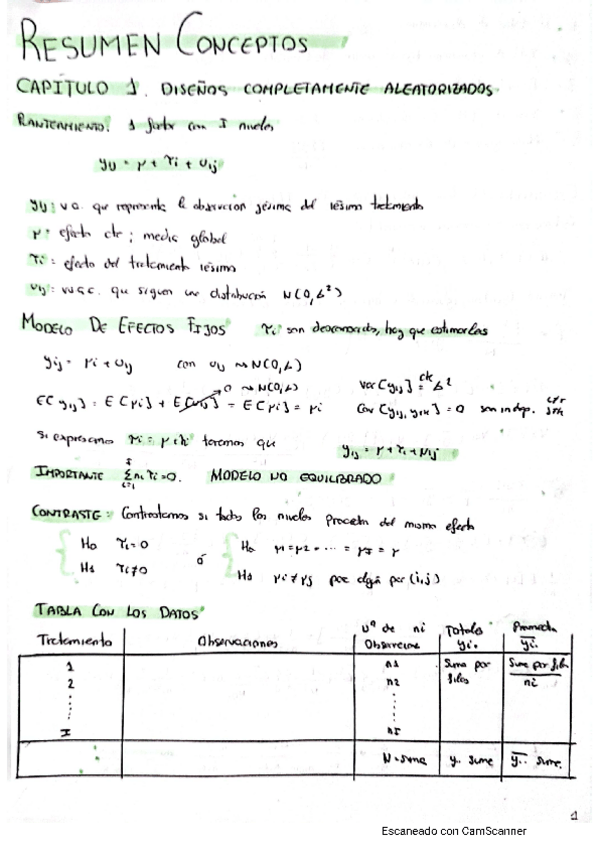 RESUMEN CONCEPTOS
CAPÍTULO 1. DISEÑOS COMPLETAMENTE ALEATORIZADOS.
PLANTEAMIENTO: 1 factor con I niveles
yij = μ + τi + uij
yij: v.a. que representa la observación jésima del iésimo tratamiento
μ: efecto cte; media global
τi: efecto del tratamiento iésimo
uij: que siguen una distribución N(0,σ²)
MODELO DE EFECTOS FIJOS τi son desconocidos, hay que estimarlos
yij = μi + uij con uij ~ N(0,σ) var[yij] = cte σ²
E[yij] = E[μi] + E[uij] = E[μi] = μi 0 ~ N(0,σ) Cov[yij, yik] = 0 son indep.
Si expresamos μi = μ + τi tenemos que yij = μ + τi + μij
IMPORTANTE Σ ni τi = 0. MODELO NO EQUILIBRADO
CONTRASTE: Contrastamos si todos los niveles proceden del mismo efecto
H0 τi = 0 ó H0 μ1 = μ2 = ... = μI = μ
H1 τi ≠ 0 H1 μi ≠ μj para algún par (i,j)
TABLA CON LOS DATOS
Tratamiento Observaciones Nº de ni Observaciones Totales yi. Promedio ȳi.
1 n1 Suma por filas Suma por fila / ni
2 n2
I nI
N = suma y.. suma ȳ.. suma
1
Escaneado con CamScanner